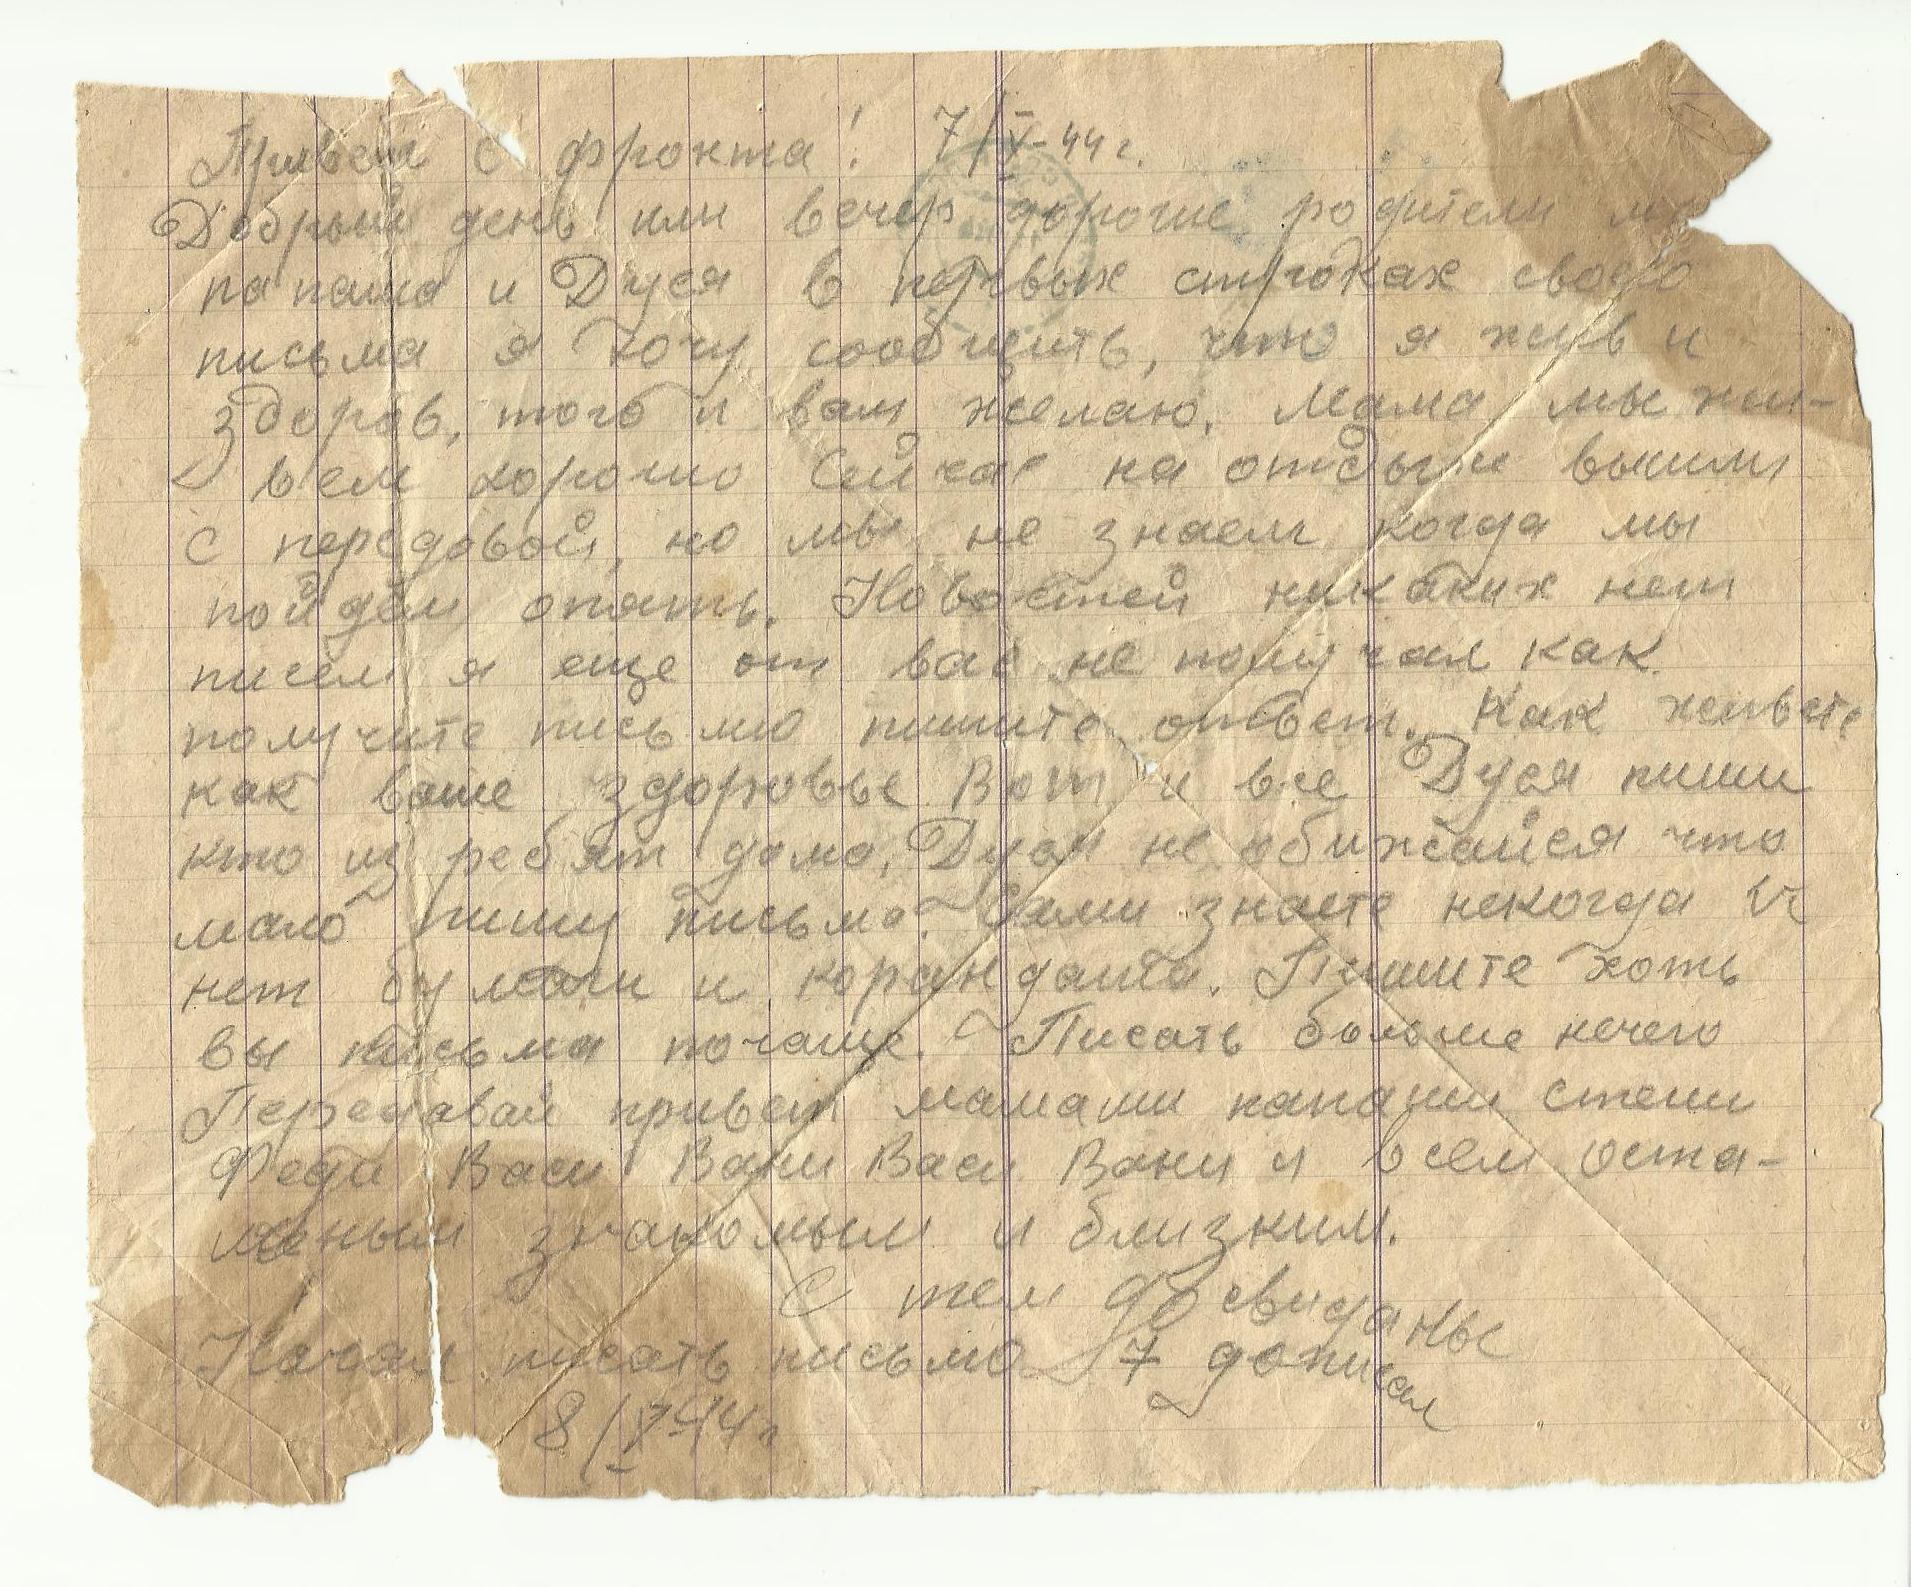 Привет с фронта! 7/X-44 г.
Добрый день или вечер дорогие родители
папаша и Дуся в первых строках своего
письма я хочу сообщить, что я жив и
здоров, того и вам желаю. Мама мы жи-
вем хорошо Сейчас на отдыхе вышли
с передовой, но мы не знаем когда мы
пойдём опять. Новостей никаких нет
писем я еще от вас не получал как
получите письмо пишите ответ. Как живете
как ваше здоровье Вот и все Дуся пиши
кто из ребят дома. Дуся не обижайся что
мало пишу письма. Сами знаете некогда и
нет бумаги и корандаша. Пишите хоть
вы письма почаще. Писать больше нечего
Передавай привет мамаши папаши
Феди Васи Вани Васи Вани и всем оста-
льным знакомым и близким.
С тем до свиданье
Начал писать письмо 7 дописал
8/X-44 г